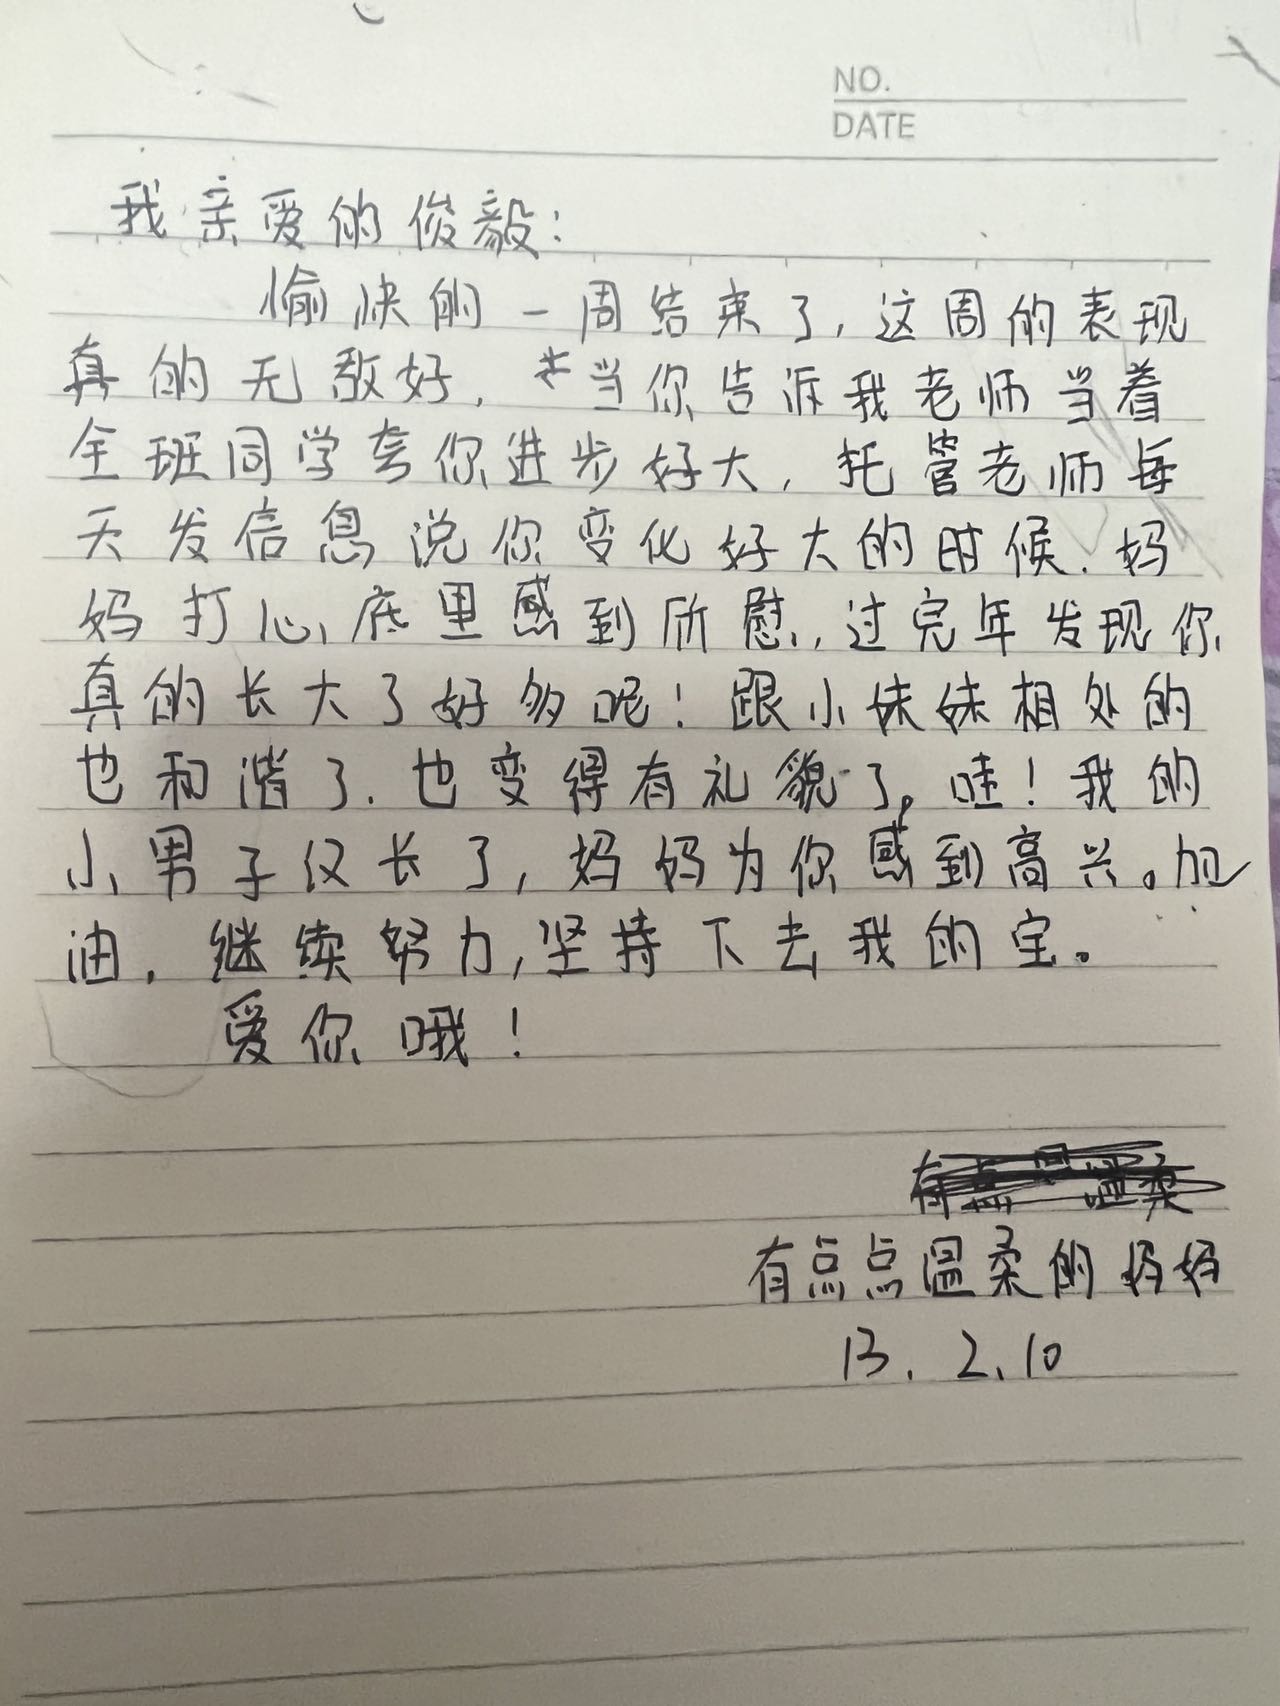 NO.
DATE
我亲爱的俊毅：
愉快的一周结束了，这周的表现
真的无敌好，当你告诉我老师当着
全班同学夸你进步好大，托管老师每
天发信息说你变化好大的时候．妈
妈打心底里感到所慰，过完年发现你
真的长大了好多呢！跟小妹妹相处的
也和谐了．也变得有礼貌了。哇！我的
小男子汉长了，妈妈为你感到高兴。加
油，继续努力，坚持下去我的宝。
爱你哦！
有点点温柔的妈妈
13．2．10